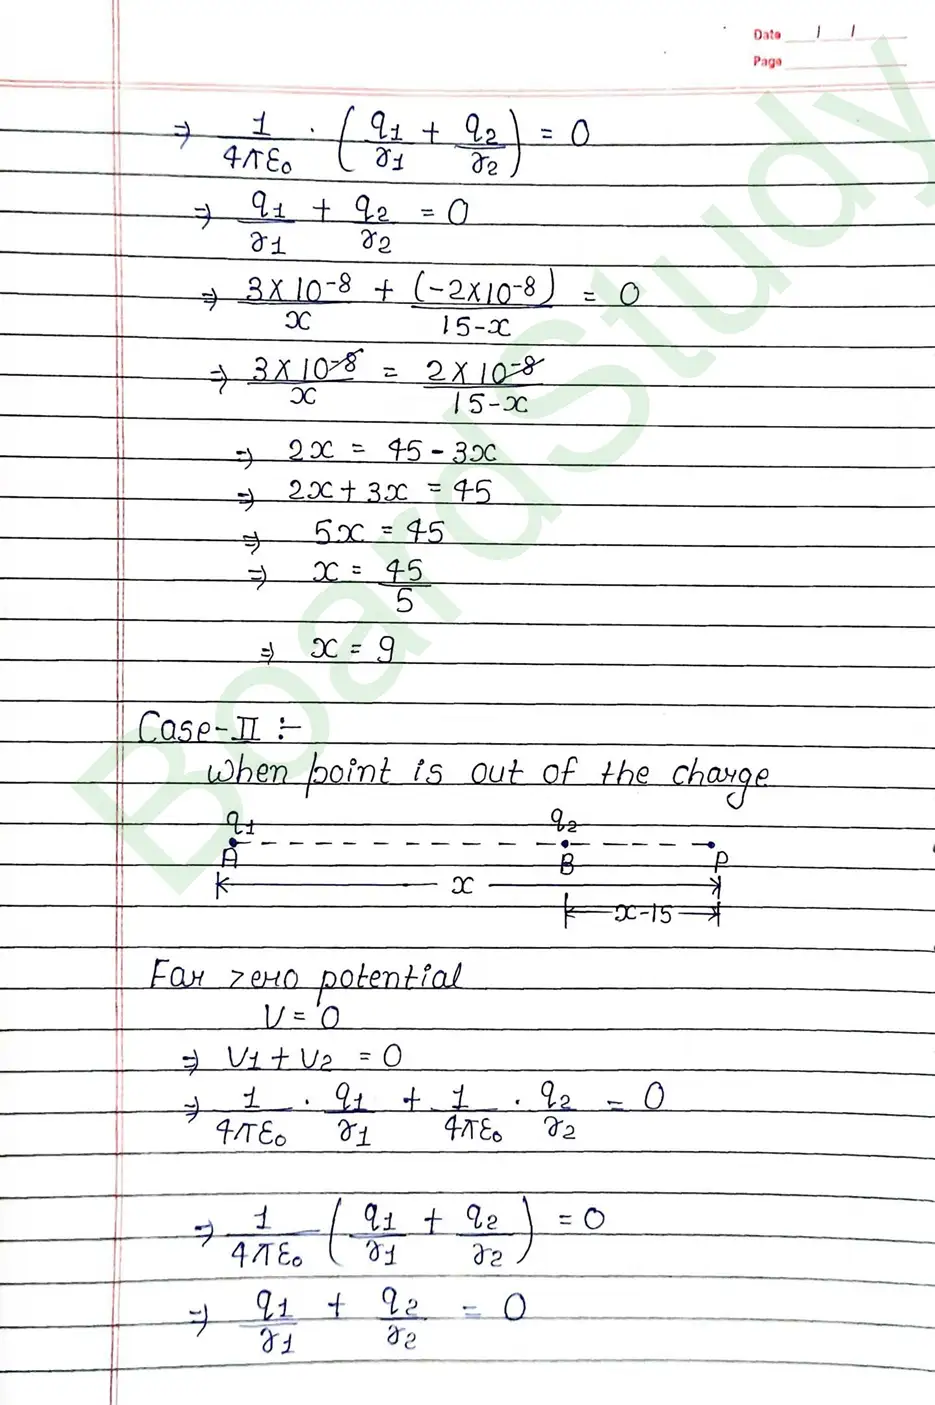 Date / /
Page
⇒ 1/4πε₀ · (q₁/r₁ + q₂/r₂) = 0
⇒ q₁/r₁ + q₂/r₂ = 0
⇒ 3×10⁻⁸/x + (-2×10⁻⁸)/15-x = 0
⇒ 3×10⁻⁸/x = 2×10⁻⁸/15-x
⇒ 2x = 45-3x
⇒ 2x+3x = 45
⇒ 5x = 45
⇒ x = 45/5
⇒ x = 9
Case-II :-
When point is out of the charge
q₁ q₂
A B P
x
x-15
For zero potential
V = 0
⇒ V₁+V₂ = 0
⇒ 1/4πε₀ · q₁/r₁ + 1/4πε₀ · q₂/r₂ = 0
⇒ 1/4πε₀ (q₁/r₁ + q₂/r₂) = 0
⇒ q₁/r₁ + q₂/r₂ = 0
BoardStudy